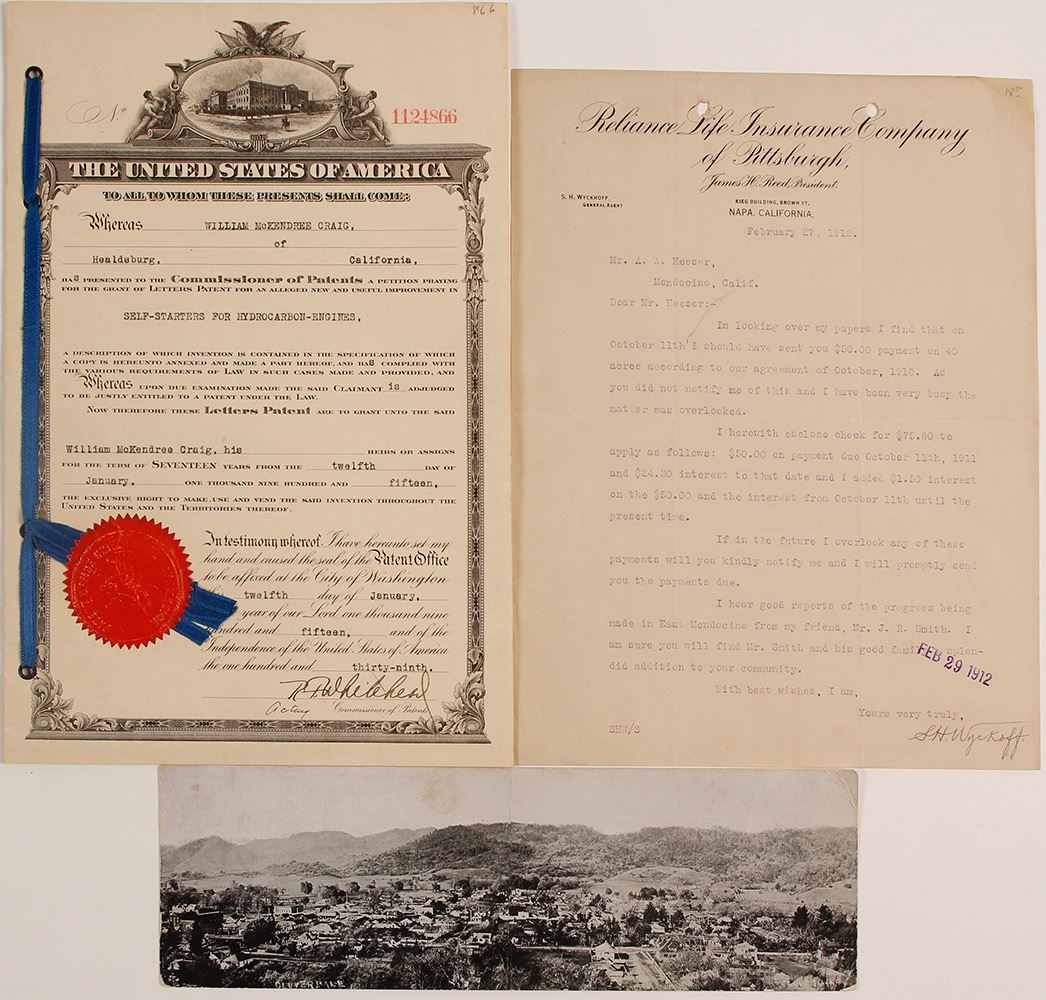 866
No 1124866
THE UNITED STATES OF AMERICA
TO ALL TO WHOM THESE PRESENTS SHALL COME:
Whereas WILLIAM McKENDREE CRAIG,
of
Healdsburg, California,
HAS PRESENTED TO THE Commissioner of Patents A PETITION PRAYING
FOR THE GRANT OF LETTERS PATENT FOR AN ALLEGED NEW AND USEFUL IMPROVEMENT IN
SELF-STARTERS FOR HYDROCARBON-ENGINES,
A DESCRIPTION OF WHICH INVENTION IS CONTAINED IN THE SPECIFICATION OF WHICH
A COPY IS HEREUNTO ANNEXED AND MADE A PART HEREOF, AND HAS COMPLIED WITH
THE VARIOUS REQUIREMENTS OF LAW IN SUCH CASES MADE AND PROVIDED, AND
Whereas UPON DUE EXAMINATION MADE THE SAID CLAIMANT is ADJUDGED
TO BE JUSTLY ENTITLED TO A PATENT UNDER THE LAW.
NOW THEREFORE THESE Letters Patent ARE TO GRANT UNTO THE SAID
William McKendree Craig, his HEIRS OR ASSIGNS
FOR THE TERM OF SEVENTEEN YEARS FROM THE twelfth DAY OF
January, ONE THOUSAND NINE HUNDRED AND fifteen,
THE EXCLUSIVE RIGHT TO MAKE, USE AND VEND THE SAID INVENTION THROUGHOUT THE
UNITED STATES AND THE TERRITORIES THEREOF.
In testimony whereof I have hereunto set my
hand and caused the seal of the Patent Office
to be affixed at the City of Washington
twelfth day of January,
year of our Lord one thousand nine
hundred and fifteen, and of the
Independence of the United States of America
the one hundred and thirty-ninth.
Whitehead
Acting Commissioner of Patents
Reliance Life Insurance Company
of Pittsburgh,
James H. Reed, President.
S. H. WYCKOFF,
GENERAL AGENT
KIEG BUILDING, BROWN ST.
NAPA, CALIFORNIA,
February 27, 1912.
Mr. A. A. Heeser,
Mendocino, Calif.
Dear Mr. Heeser:-
In looking over my papers I find that on
October 11th I should have sent you $50.00 payment on 40
acres according to our agreement of October, 1910. As
you did not notify me of this and I have been very busy the
matter was overlooked.
I herewith enclose check for $75.80 to
apply as follows: $50.00 on payment due October 11th, 1911
and $24.30 interest to that date and I added $1.50 interest
on the $50.00 and the interest from October 11th until the
present time.
If in the future I overlook any of these
payments will you kindly notify me and I will promptly send
you the payments due.
I hear good reports of the progress being
made in East Mendocino from my friend, Mr. J. R. Smith. I
am sure you will find Mr. Smith and his good family a splen-
did addition to your community.
FEB 29 1912
With best wishes, I am,
Yours very truly,
SHW/S
S.H. Wyckoff.
CLOVERDALE